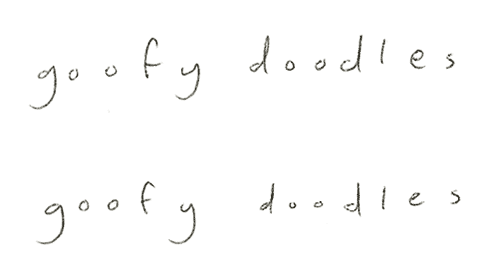 goofy doodles
goofy doodles